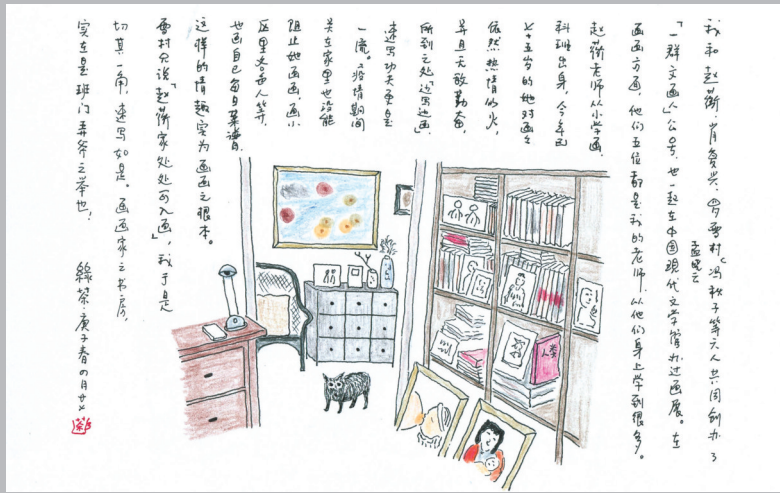 我和赵蘅、肖复兴、罗雪村、冯秋子等六人共同创办了
孟晓云
「一群文画人」公号，也一起在中国现代文学馆办过画展。在
画画方面，他们五位都是我的老师，从他们身上学到很多。
赵蘅老师从小学画，
科班出身，今年已
七十五岁的她对画画
依然热情似火，
并且无敌勤奋，
所到之处「边写边画」，
速写功夫更是
一流。「疫情期间
关在家里也没能
阻止她画画，画小
区里各色人等，
也画自己每日菜谱，
这样的情趣实为画画之根本。
雪村兄说「赵蘅家处处可入画」，我于是
切其一角，速写如是。画画家之书房，
实在是班门弄斧之举也，
绿茶庚子春四月廿
人类